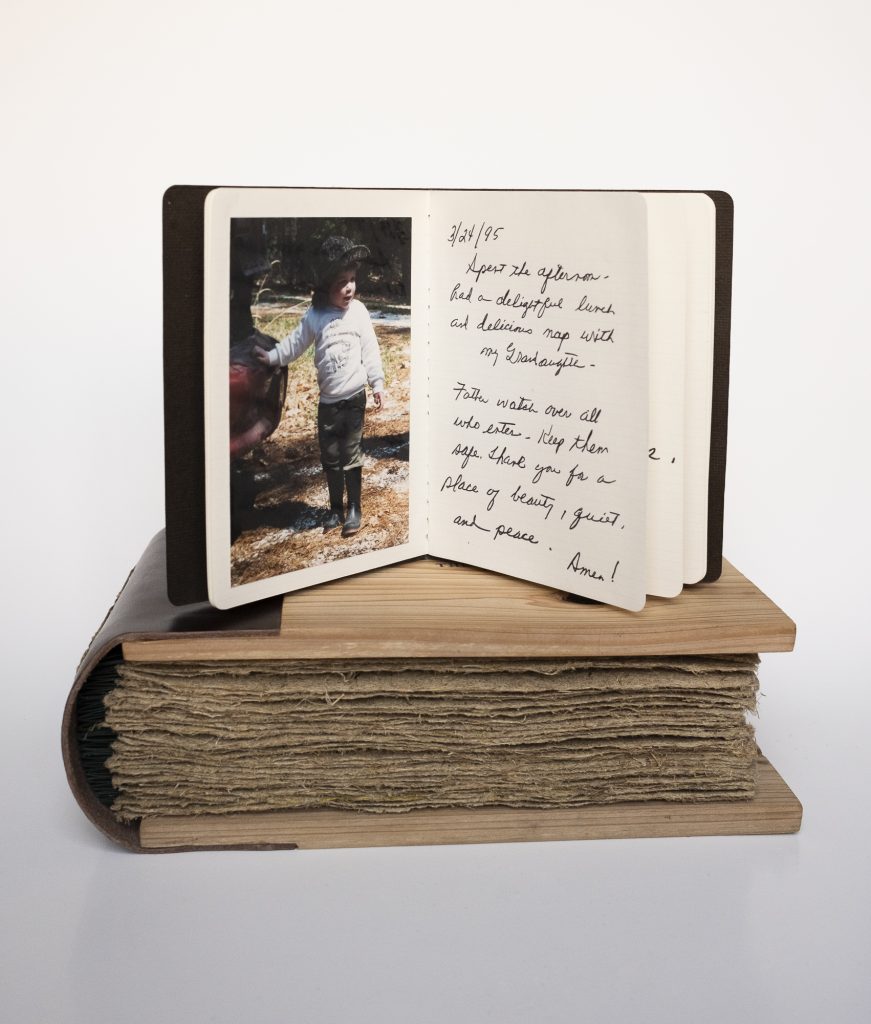 3/24/95
Spent the afternoon -
had a delightful lunch
and delicious nap with
my Grandaughter -
Father watch over all
who enter - Keep them
safe. Thank you for a
place of beauty, quiet,
and peace.
Amen!
2.